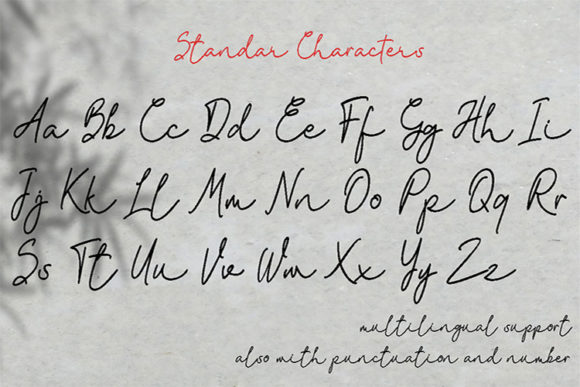 Standar Characters
Aa Bb Cc Dd Ee Ff Gg Hh Ii
Jj Kk Ll Mm Nn Oo Pp Qq Rr
Ss Tt Uu Vv Ww Xx Yy Zz
multilingual support
also with punctuation and number